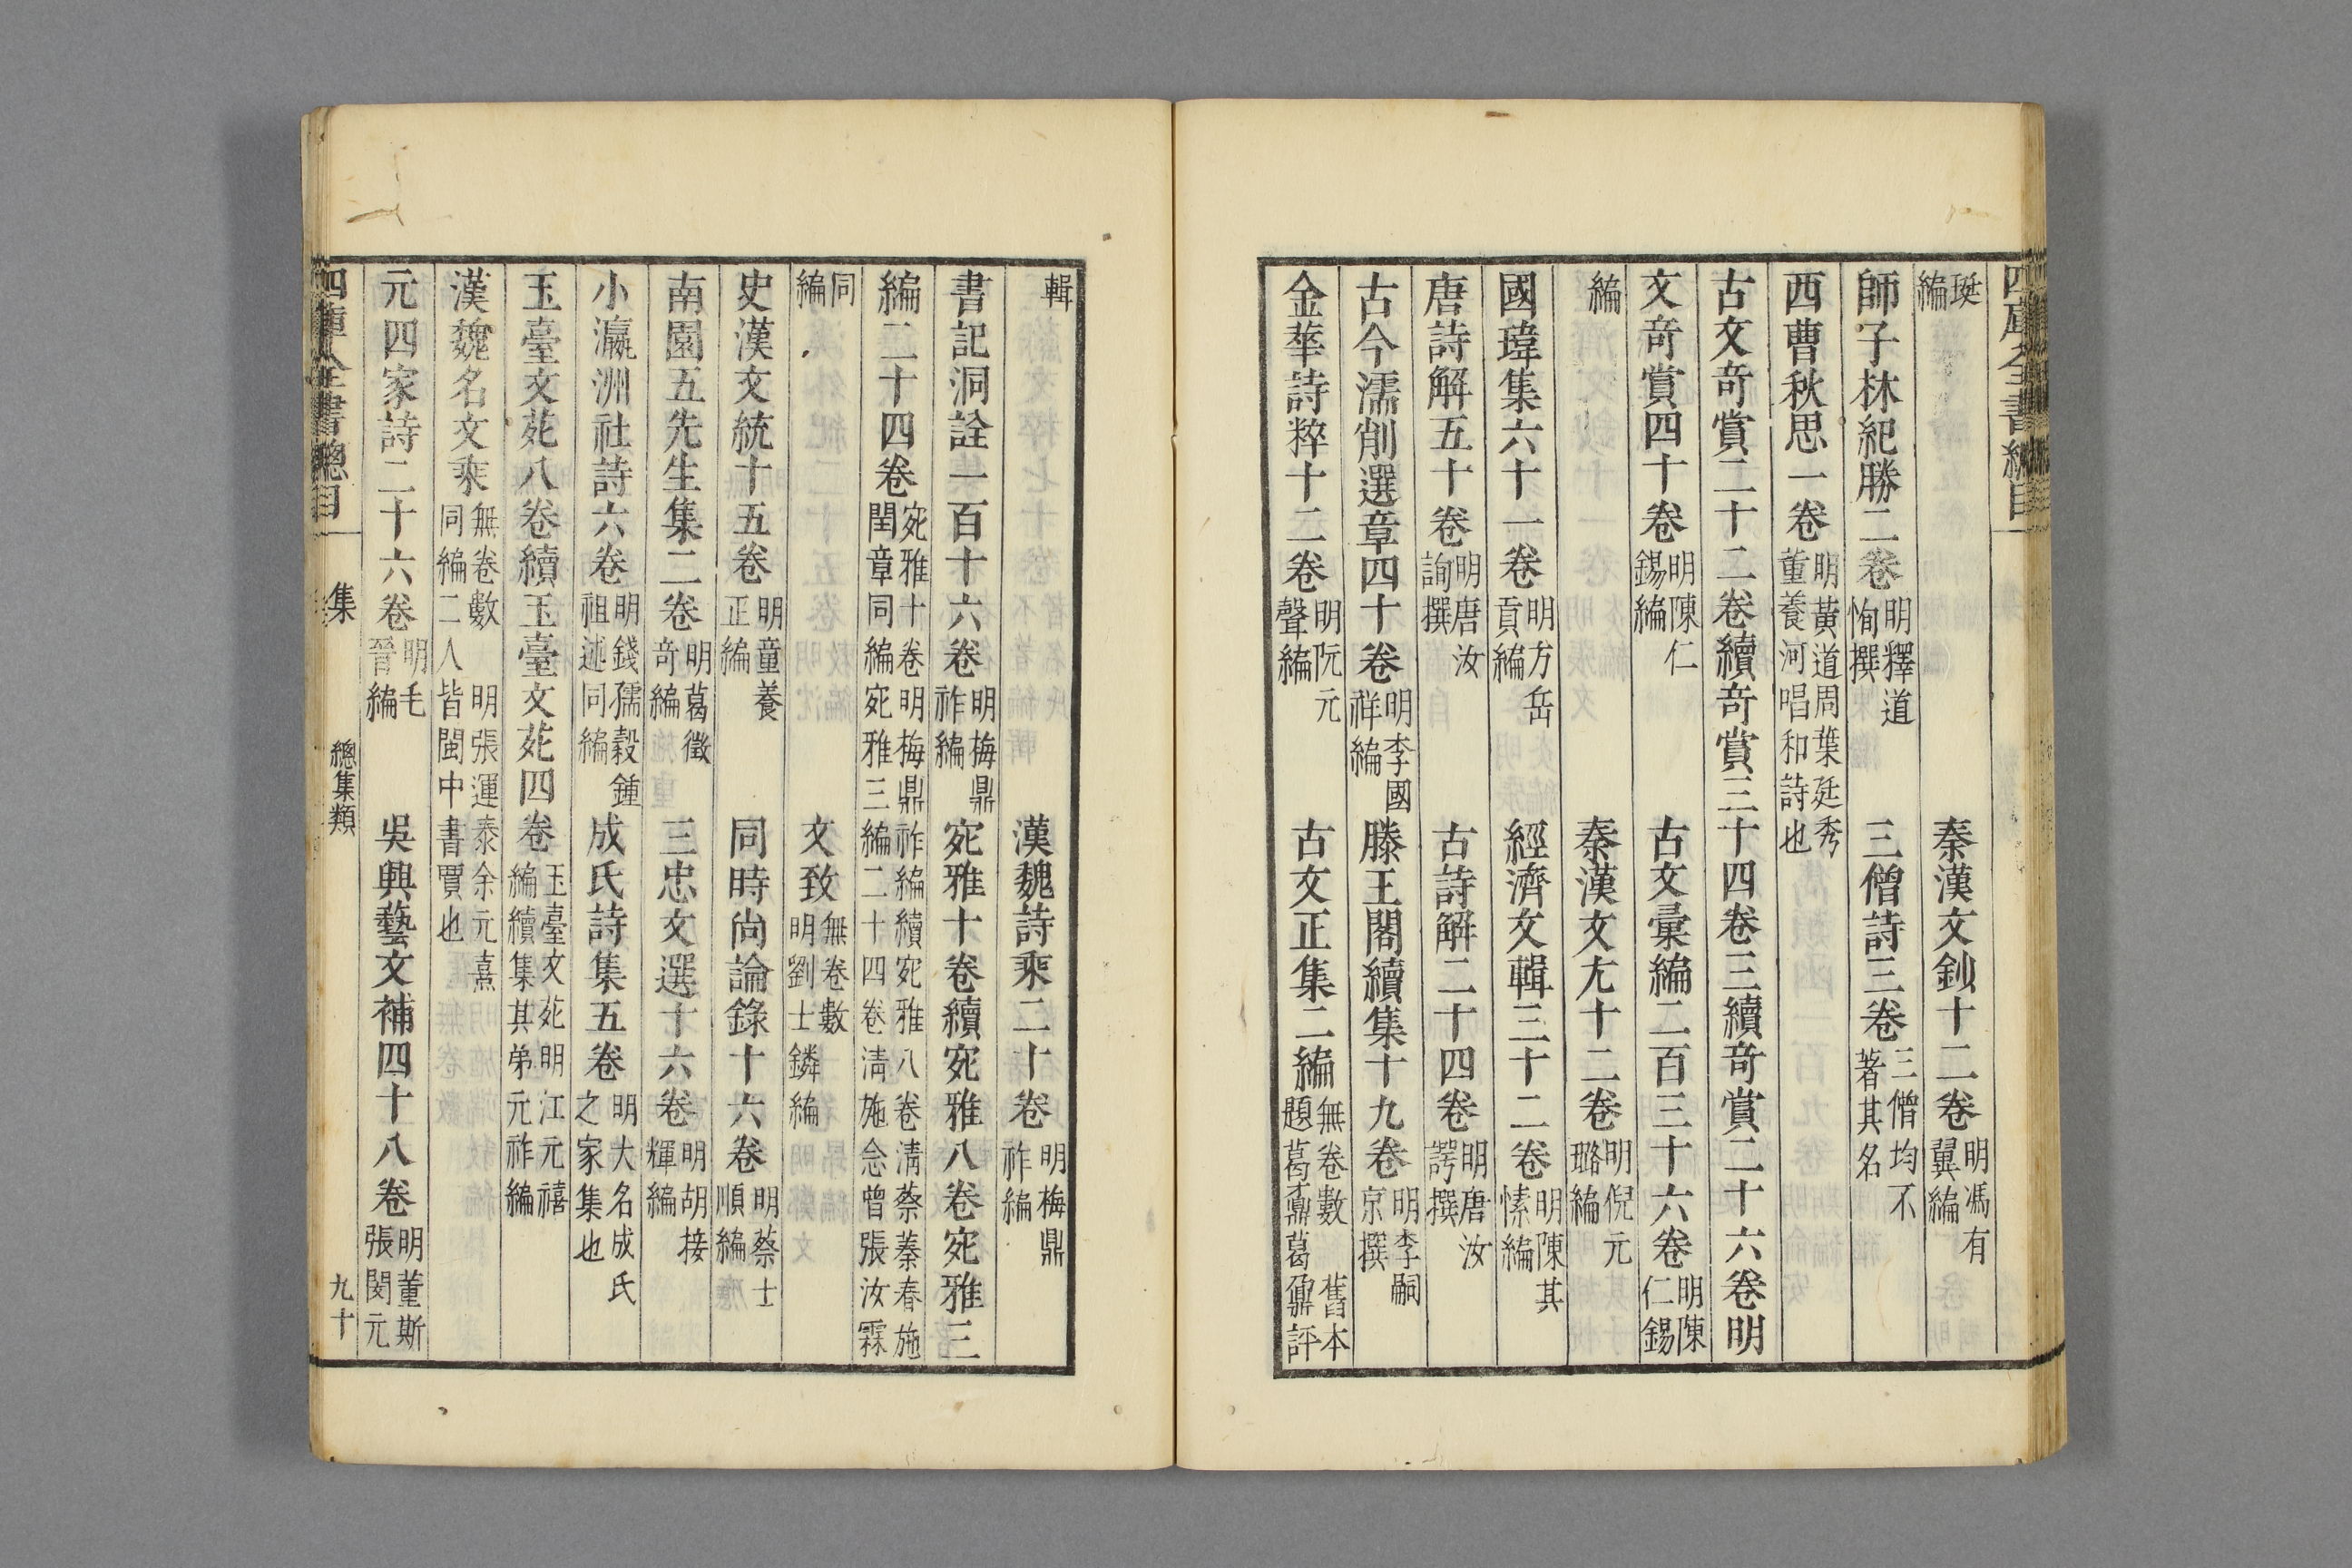 四庫全書總目
珽編 秦漢文鈔十二卷 明馮有翼編
師子林紀勝二卷 明釋道恂撰 三僧詩三卷 三僧均不著其名
西曹秋思一卷 明黃道周葉廷秀董養河唱和詩也
古文奇賞二十二卷續奇賞三十四卷三續奇賞二十六卷明
文奇賞四十卷 明陳仁錫編 古文彙編二百三十六卷 明陳仁錫
編 秦漢文尤十二卷 明倪元璐編
國瑋集六十一卷 明方岳貢編 經濟文輯三十二卷 明陳其愫編
唐詩解五十卷 明唐汝詢撰 古詩解二十四卷 明唐汝諤撰
古今濡削選章四十卷 明李國祥編 滕王閣續集十九卷 明李嗣京撰
金華詩粹十二卷 明阮元聲編 古文正集二編 無卷數 舊本題葛鼒葛鼏評
輯 漢魏詩乘二十卷 明梅鼎祚編
書記洞詮一百十六卷 明梅鼎祚編 宛雅十卷續宛雅八卷宛雅三
編二十四卷 宛雅十卷明梅鼎祚編續宛雅八卷淸蔡蓁春施閏章同編宛雅三編二十四卷淸施念曾張汝霖
同編 文致 無卷數 明劉士鏻編
史漢文統十五卷 明童養正編 同時尙論錄十六卷 明蔡士順編
南園五先生集二卷 明葛徵奇編 三忠文選十六卷 明胡接輝編
小瀛洲社詩六卷 明錢孺穀鍾祖述同編 成氏詩集五卷 明大名成氏之家集也
玉臺文苑八卷續玉臺文苑四卷 玉臺文苑明江元禧編續集其弟元祚編
漢魏名文乘 無卷數 明張運泰余元熹同編二人皆閩中書賈也
元四家詩二十六卷 明毛晉編 吳興藝文補四十八卷 明董斯張閔元
四庫全書總目 集 總集類 九十